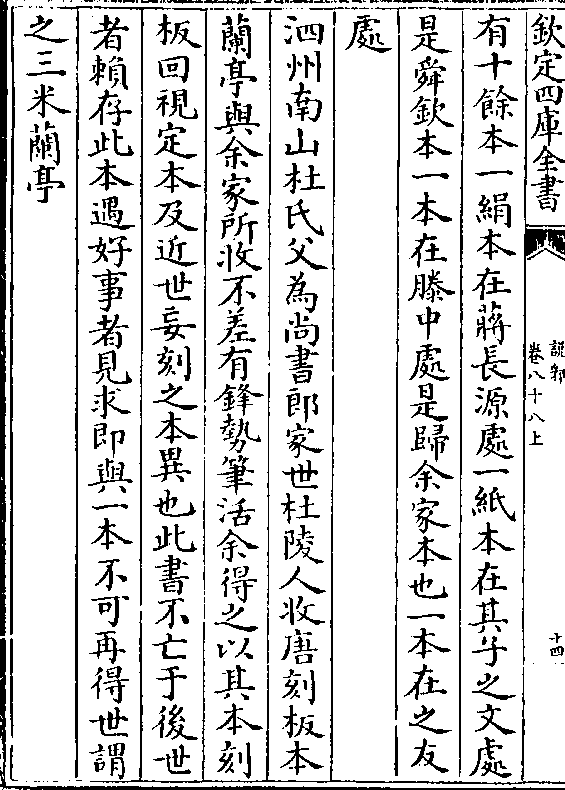 欽定四庫全書
說郛
卷八十八上
十四
有十餘本一絹本在蔣長源處一紙本在其子之文處
是舜欽本一本在滕中處是歸余家本也一本在之友
處
泗州南山杜氏父為尚書郎家世杜陵人收唐刻板本
蘭亭與余家所收不差有鋒勢筆活余得之以其本刻
板回視定本及近世妄刻之本異也此書不亡于後世
者賴存此本遇好事者見求即與一本不可再得世謂
之三米蘭亭